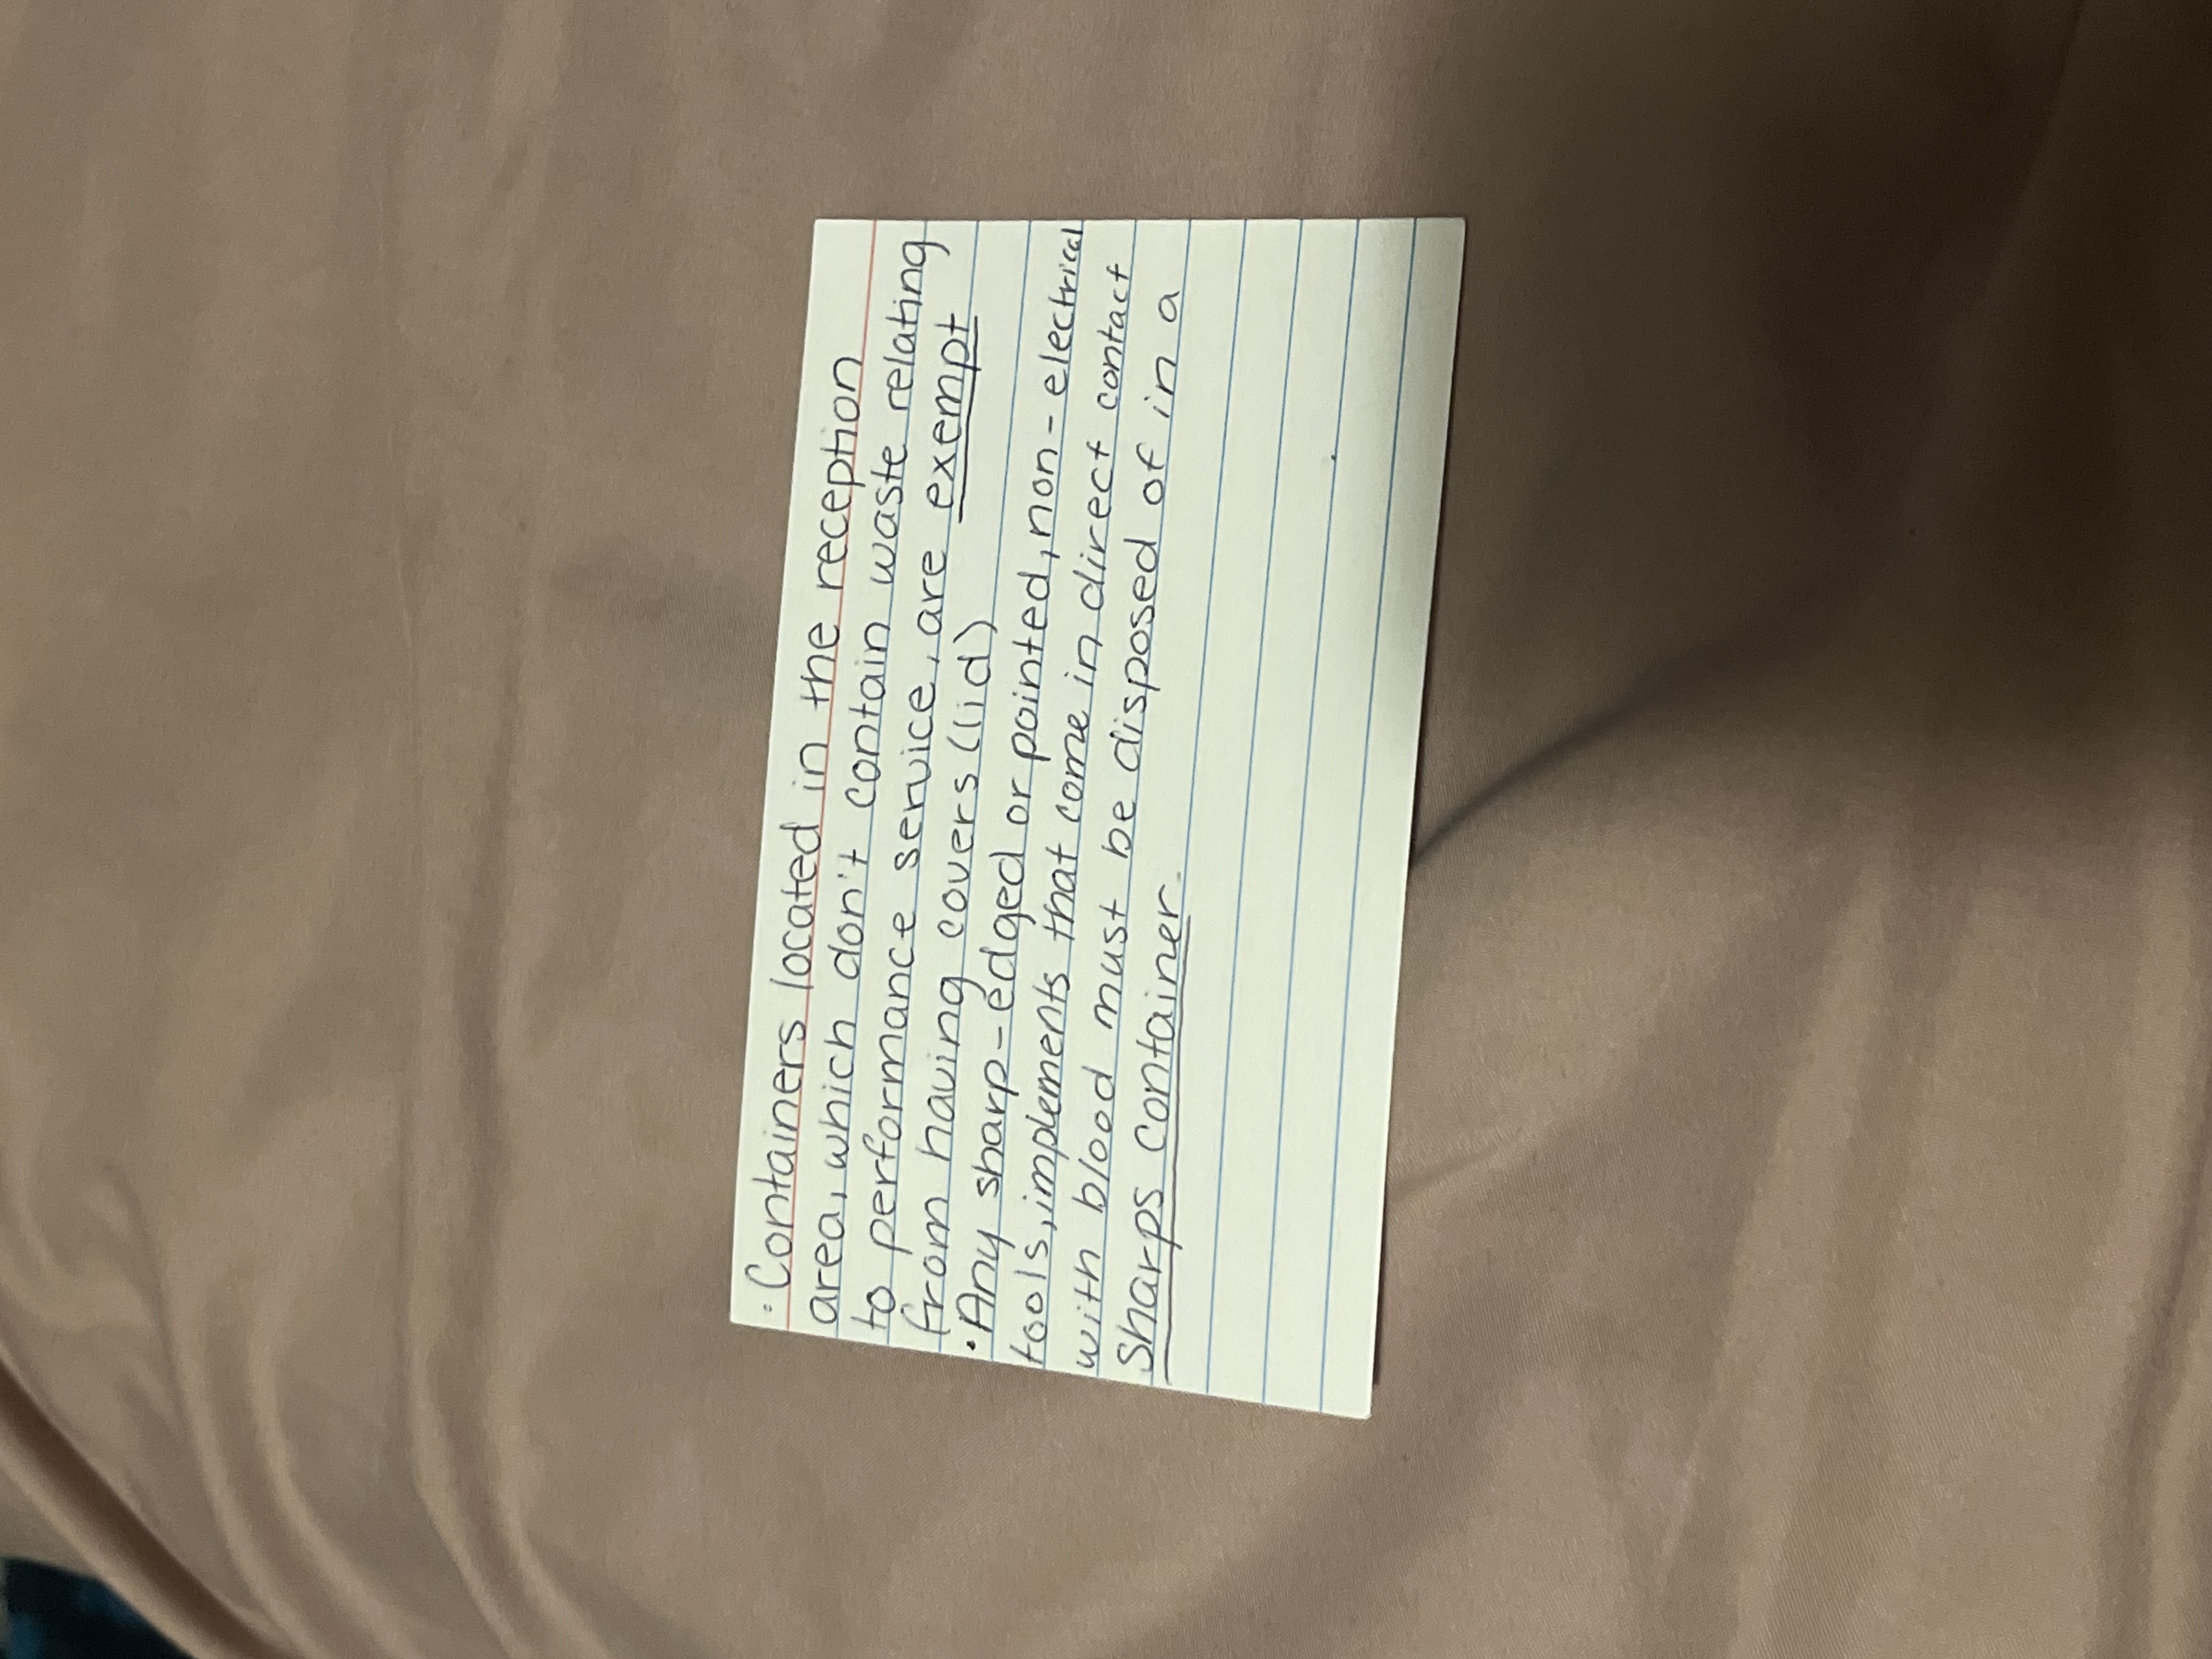 • Containers located in the reception
area, which don't contain waste relating
to performance service, are exempt
from having covers (lid)
• Any sharp-edged or pointed, non-electrical
tools, implements that come in direct contact
with blood must be disposed of in a
Sharps Container.